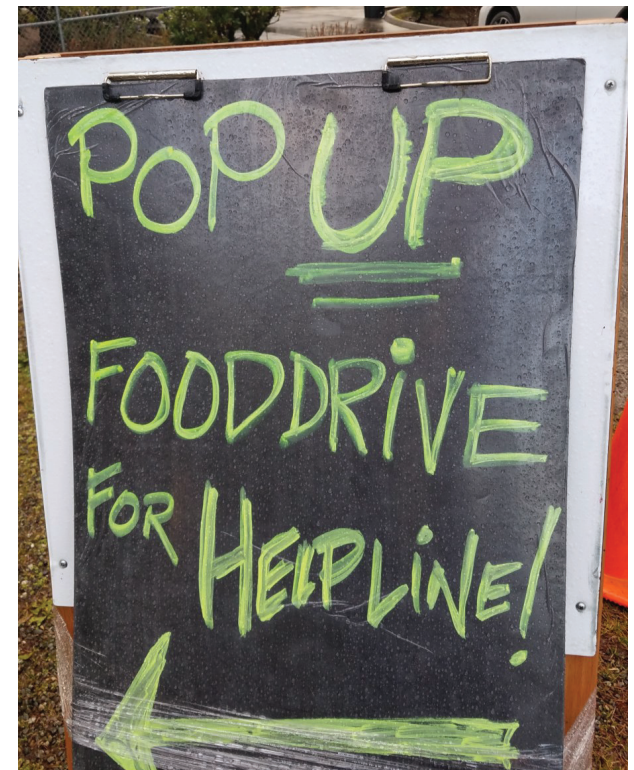 POP UP
FOODDRIVE
FOR HELPLINE!